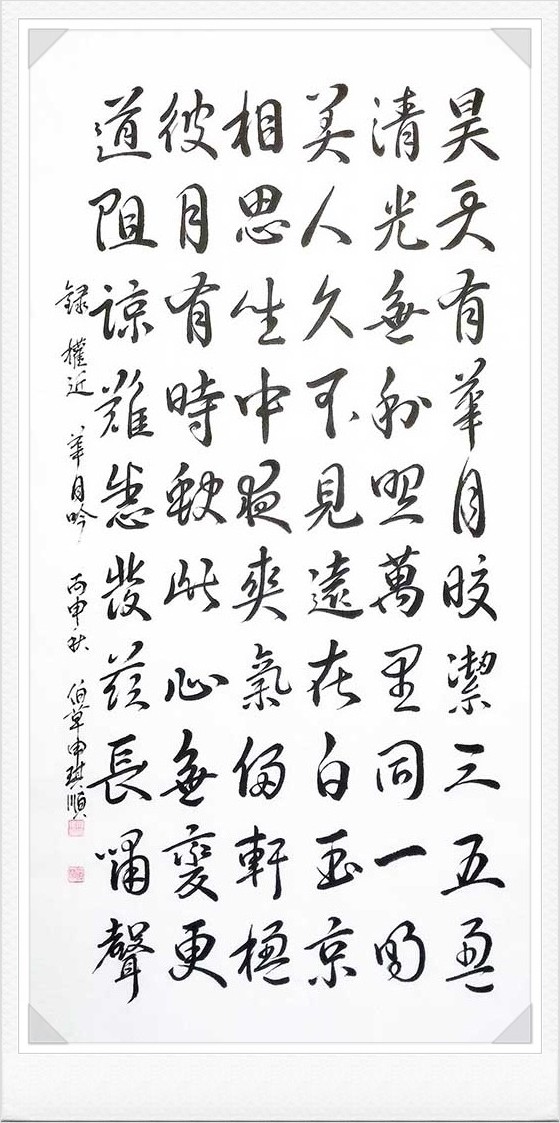 昊天有華月皎潔三五盈
清光無私照萬里同一明
美人久不見遠在白玉京
相思坐中夜爽氣侵軒楹
彼月有時缺此心無變更
道阻諒難發茲長嘯聲
錄 權近 華月吟 丙申秋 申琪順